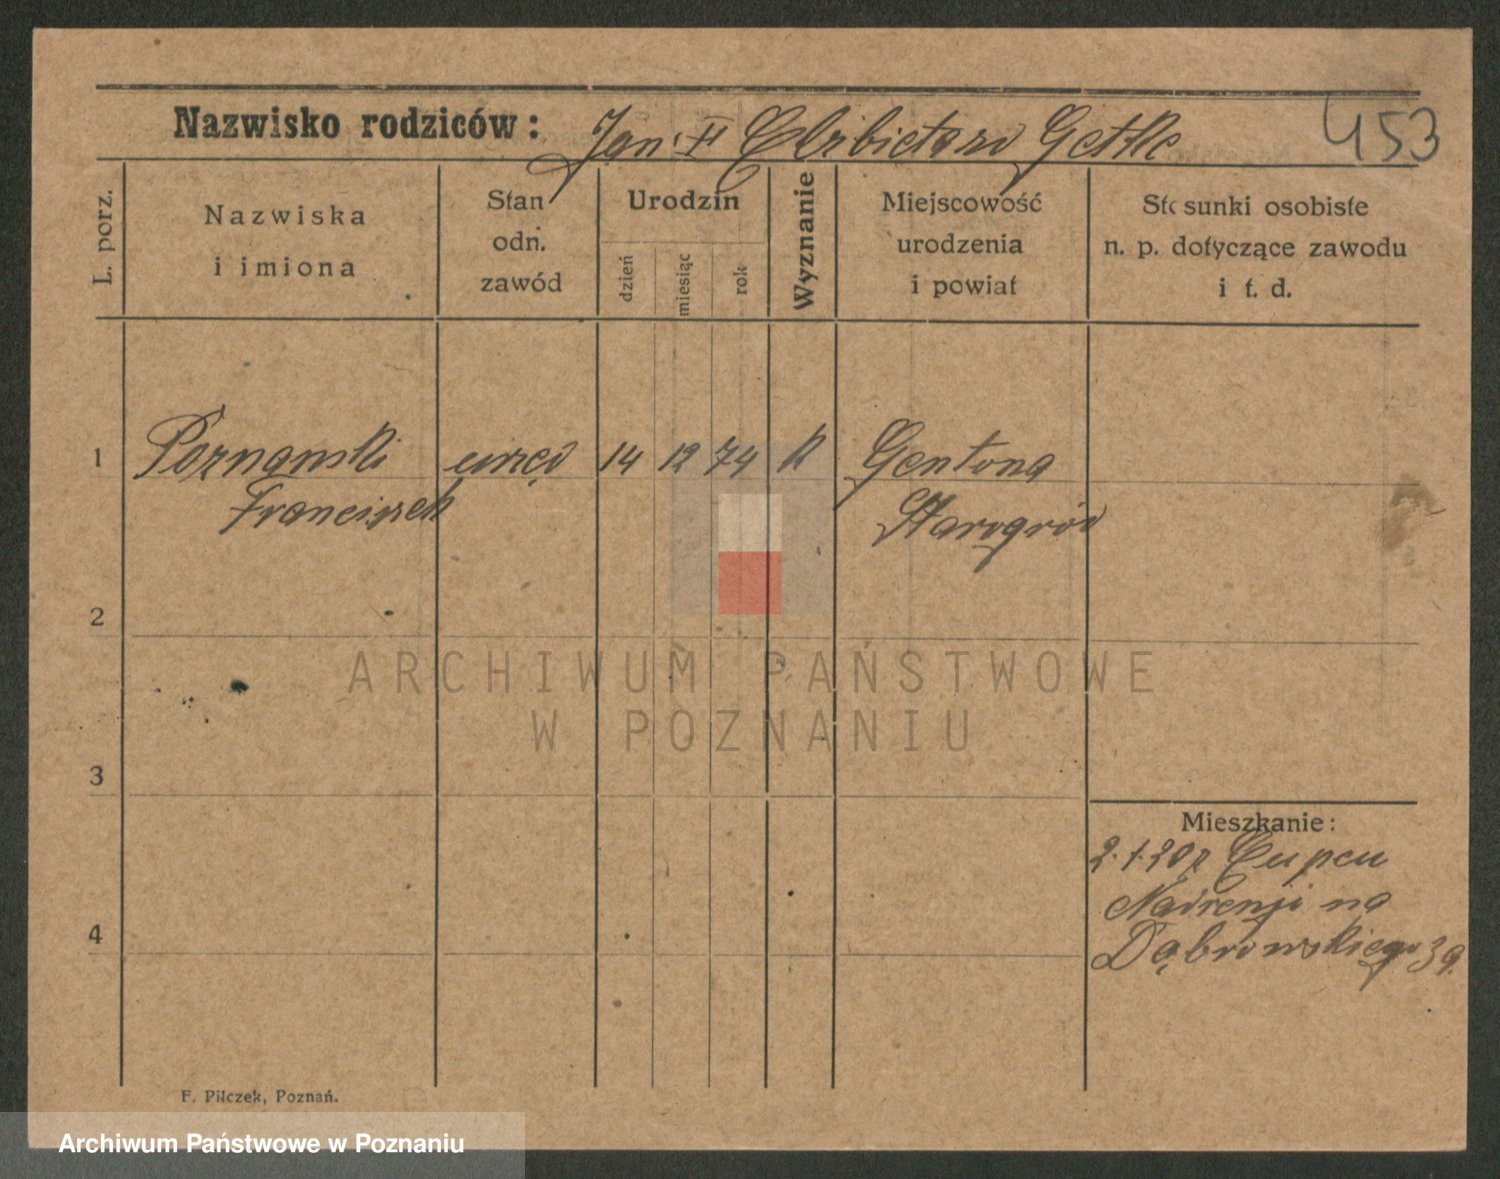 453
Nazwisko rodziców: Jan i Elżbieta zd Gettke
L. porz.
Nazwiska
i imiona
Stan
odn.
zawód
Urodzin
dzień
miesiąc
rok
Wyznanie
Miejscowość
urodzenia
i powiat
Stosunki osobiste
n. p. dotyczące zawodu
i t. d.
1 Poznanski 14 12 74 k Gentona
Franciszek Starogród
2
3
4
Mieszkanie:
2.1.20 z Eupeu
Nadrenji na
Dąbrowskiego 39.
F. Pilczek, Poznań.
ARCHIWUM PAŃSTWOWE
W POZNANIU
Archiwum Państwowe w Poznaniu